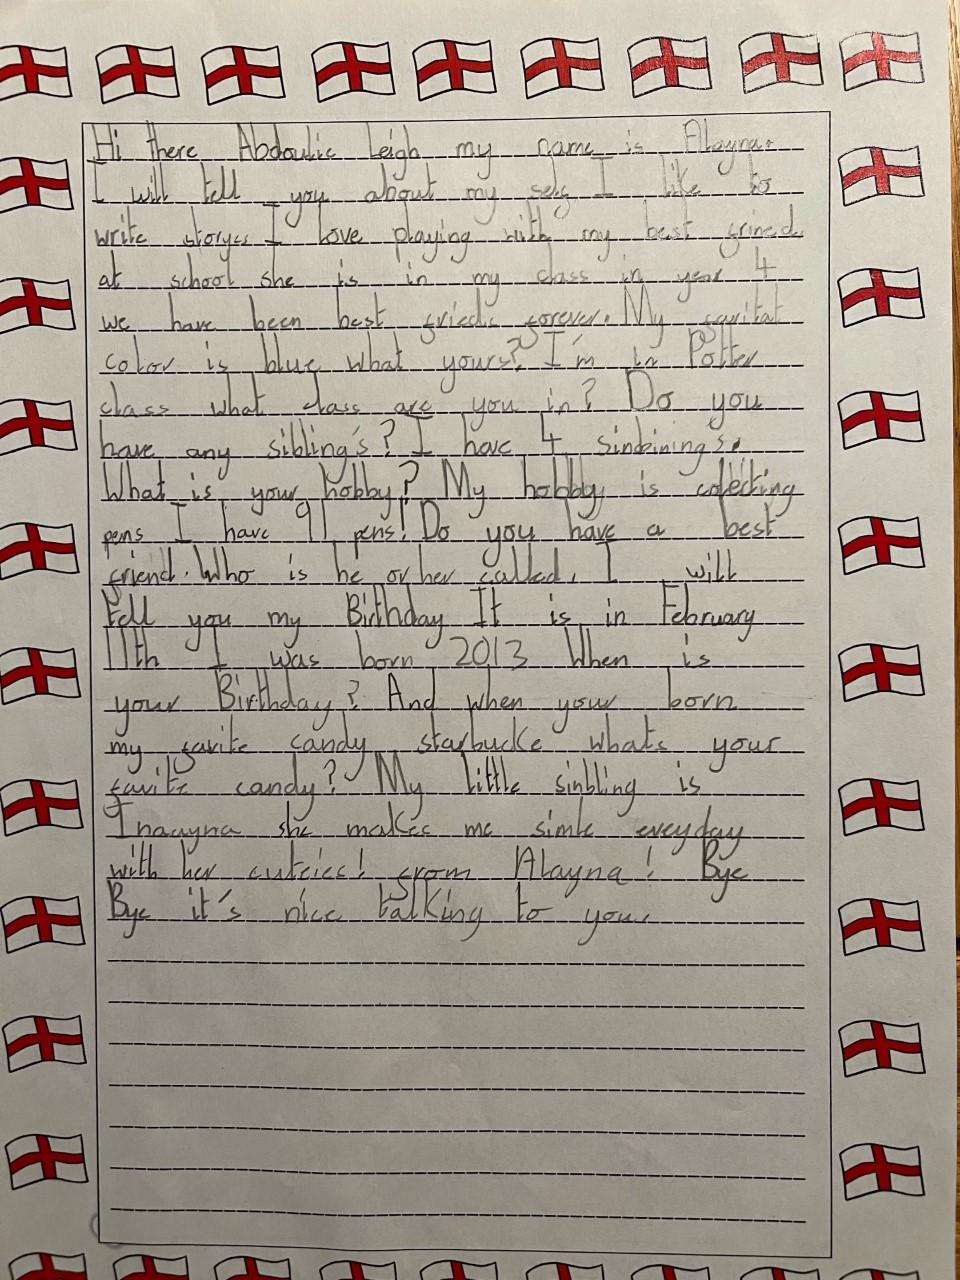 Hi there Abdoulie Leigh my name is Alayna.
I will tell you about my self I like to
write storyes I love playing with my best frined
at school she is in my class in year 4
we have been best friedis forever. My favitat
color is blue what yours? I'm in Potter
class what class are you in? Do you
have any sibling's? I have 4 sinbining's.
What is your hobby? My hobbby is colecting
pens I have 91 pens! Do you have a best
friend. Who is he or her called. I will
tell you my Birthday It is in February
11th I was born 2013 When is
your Birthday? And when your born
my favite candy starbucke whats your
favite candy? My little sinbling is
Inaayna she makes me simle eveyday
with her cuteies! from Alayna! Bye
Bye it's nice talking to you.